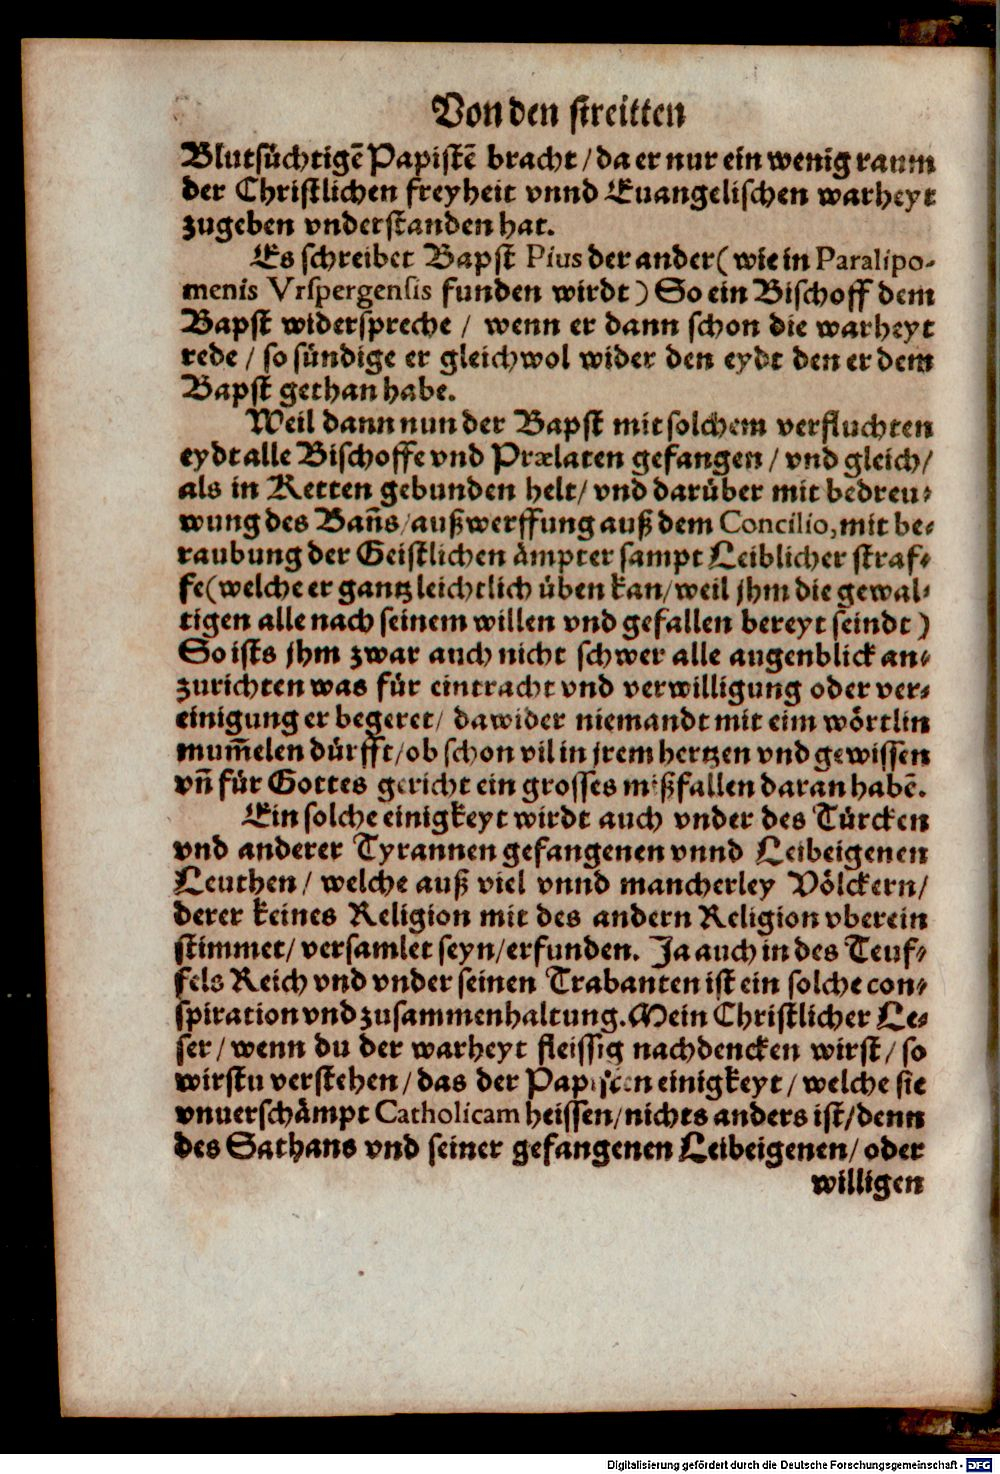 Von den streitten
Blutsüchtigē Papistē bracht / da er nur ein wenig raum
der Christlichen freyheit vnnd Euangelischen warheyt
zugeben vnderstanden hat.
Es schreibet Bapst Pius der ander ( wie in Paralipo-
menis Vrspergensis funden wirdt ) So ein Bischoff dem
Bapst widerspreche / wenn er dann schon die warheyt
rede / so sündige er gleichwol wider den eydt den er dem
Bapst gethan habe.
Weil dann nun der Bapst mit solchem verfluchten
eydt alle Bischoffe vnd Prælaten gefangen / vnd gleich /
als in Ketten gebunden helt / vnd darüber mit bedreu-
wung des Bañs / außwerffung auß dem Concilio, mit be-
raubung der Geistlichen ämpter sampt Leiblicher straf-
fe ( welche er gantz leichtlich üben kan / weil jhm die gewal-
tigen alle nach seinem willen vnd gefallen bereyt seindt )
So ists jhm zwar auch nicht schwer alle augenblick an-
zurichten was für eintracht vnd verwilligung oder ver-
einigung er begeret / dawider niemandt mit eim wörtlin
mum̃elen dürfft / ob schon vil in jrem hertzen vnd gewissen
vñ für Gottes gericht ein grosses mißfallen daran habē.
Ein solche einigkeyt wirdt auch vnder des Türcken
vnd anderer Tyrannen gefangenen vnnd Leibeigenen
Leuthen / welche auß viel vnnd mancherley Völckern /
derer keines Religion mit des andern Religion vberein
stimmet / versamlet seyn / erfunden. Ja auch in des Teuf-
fels Reich vnd vnder seinen Trabanten ist ein solche con-
spiration vnd zusammenhaltung. Mein Christlicher Le-
ser / wenn du der warheyt fleissig nachdencken wirst / so
wirstu verstehen / das der Papisten einigkeyt / welche sie
vnuerschämpt Catholicam heissen / nichts anders ist / denn
des Sathans vnd seiner gefangenen Leibeigenen / oder
willigen
Digitalisierung gefördert durch die Deutsche Forschungsgemeinschaft - DFG